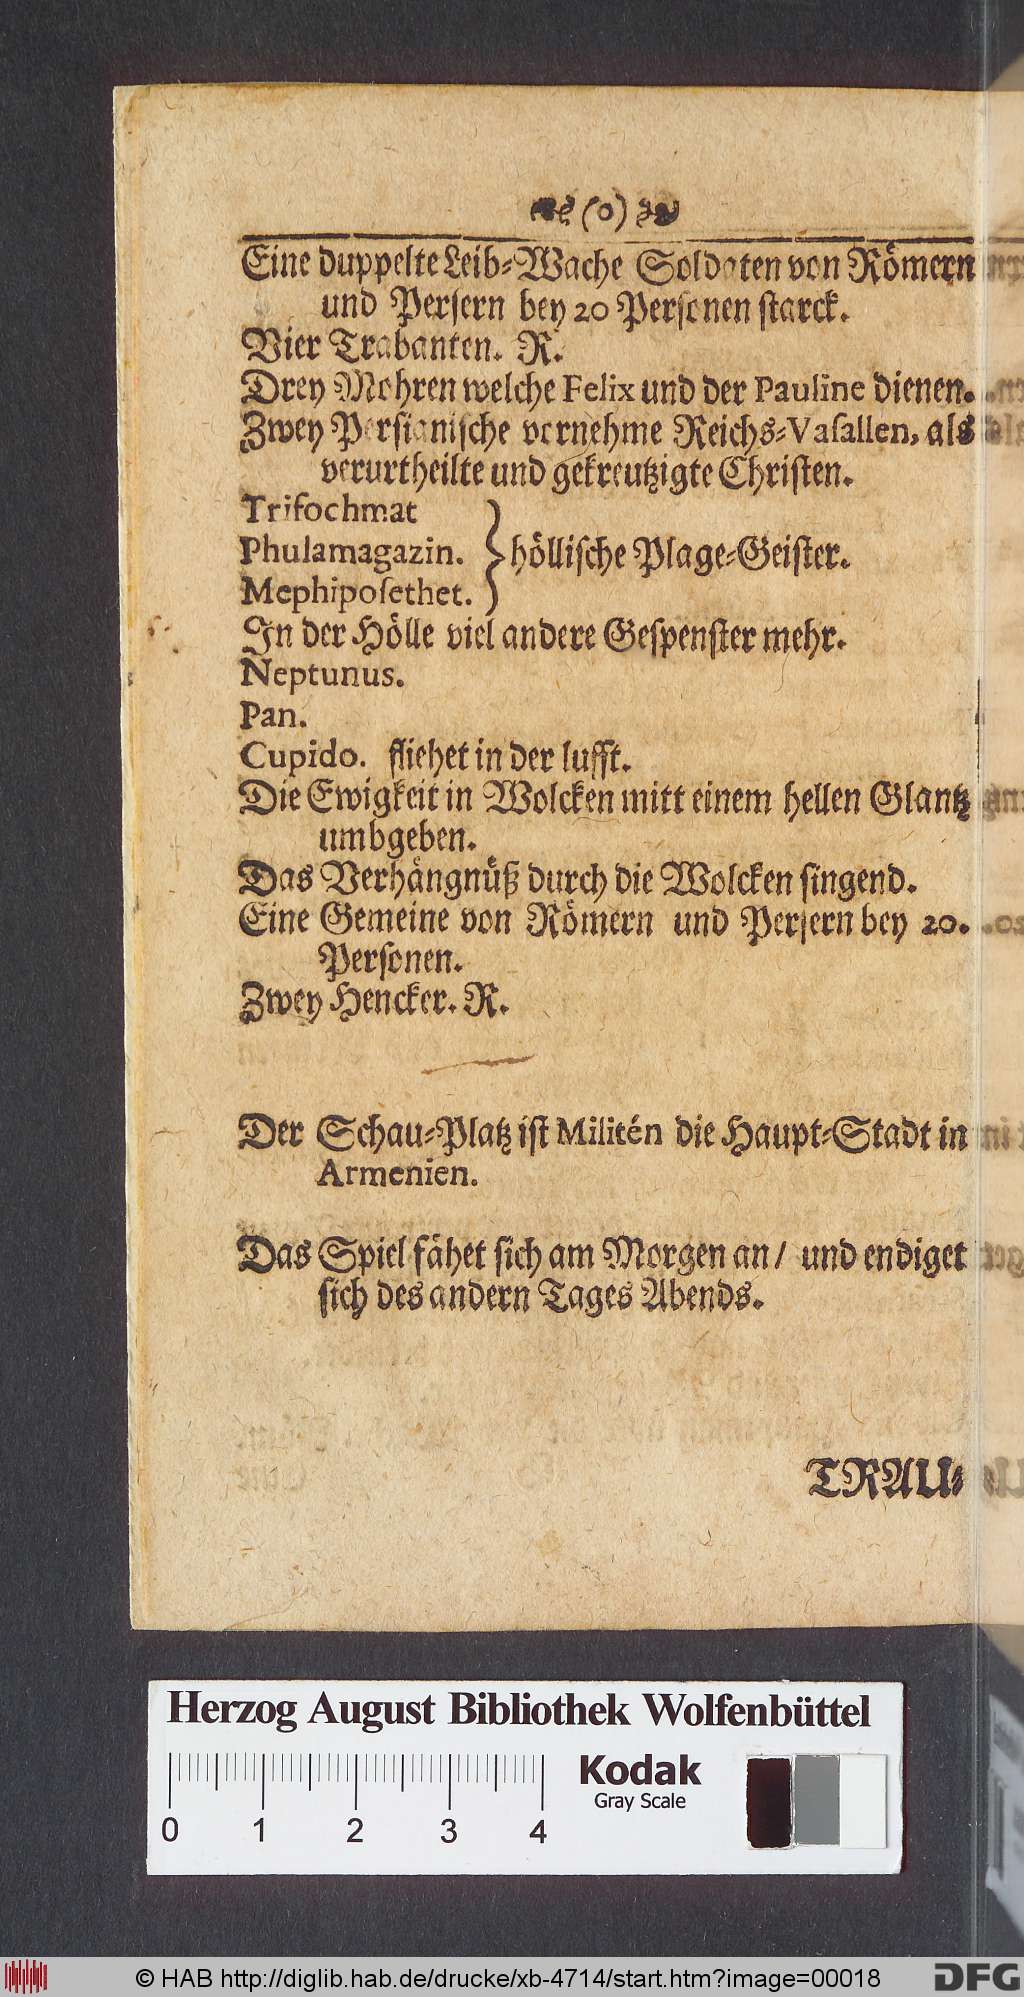 (o)
Eine duppelte Leib-Wache Soldaten von Römern
und Persern bey 20 Personen starck.
Vier Trabanten. R.
Drey Mohren welche Felix und der Pauline dienen.
Zwey Persianische vornehme Reichs-Vaſallen, als
verurtheilte und gekreutzigte Christen.
Trifochmat
Phulamagazin. } höllische Plage-Geister.
Mephipoſethet.
In der Hölle viel andere Gespenster mehr.
Neptunus.
Pan.
Cupido. fliehet in der lufft.
Die Ewigkeit in Wolcken mitt einem hellen Glantz
umbgeben.
Das Verhängnüß durch die Wolcken singend.
Eine Gemeine von Römern und Persern bey 20.
Personen.
Zwey Hencker. R.
Der Schau-Platz ist Militén die Haupt-Stadt in
Armenien.
Das Spiel fähet sich am Morgen an / und endiget
sich des andern Tages Abends.
TRAU-
Herzog August Bibliothek Wolfenbüttel
Kodak
Gray Scale
0 1 2 3 4
© HAB http://diglib.hab.de/drucke/xb-4714/start.htm?image=00018
DFG